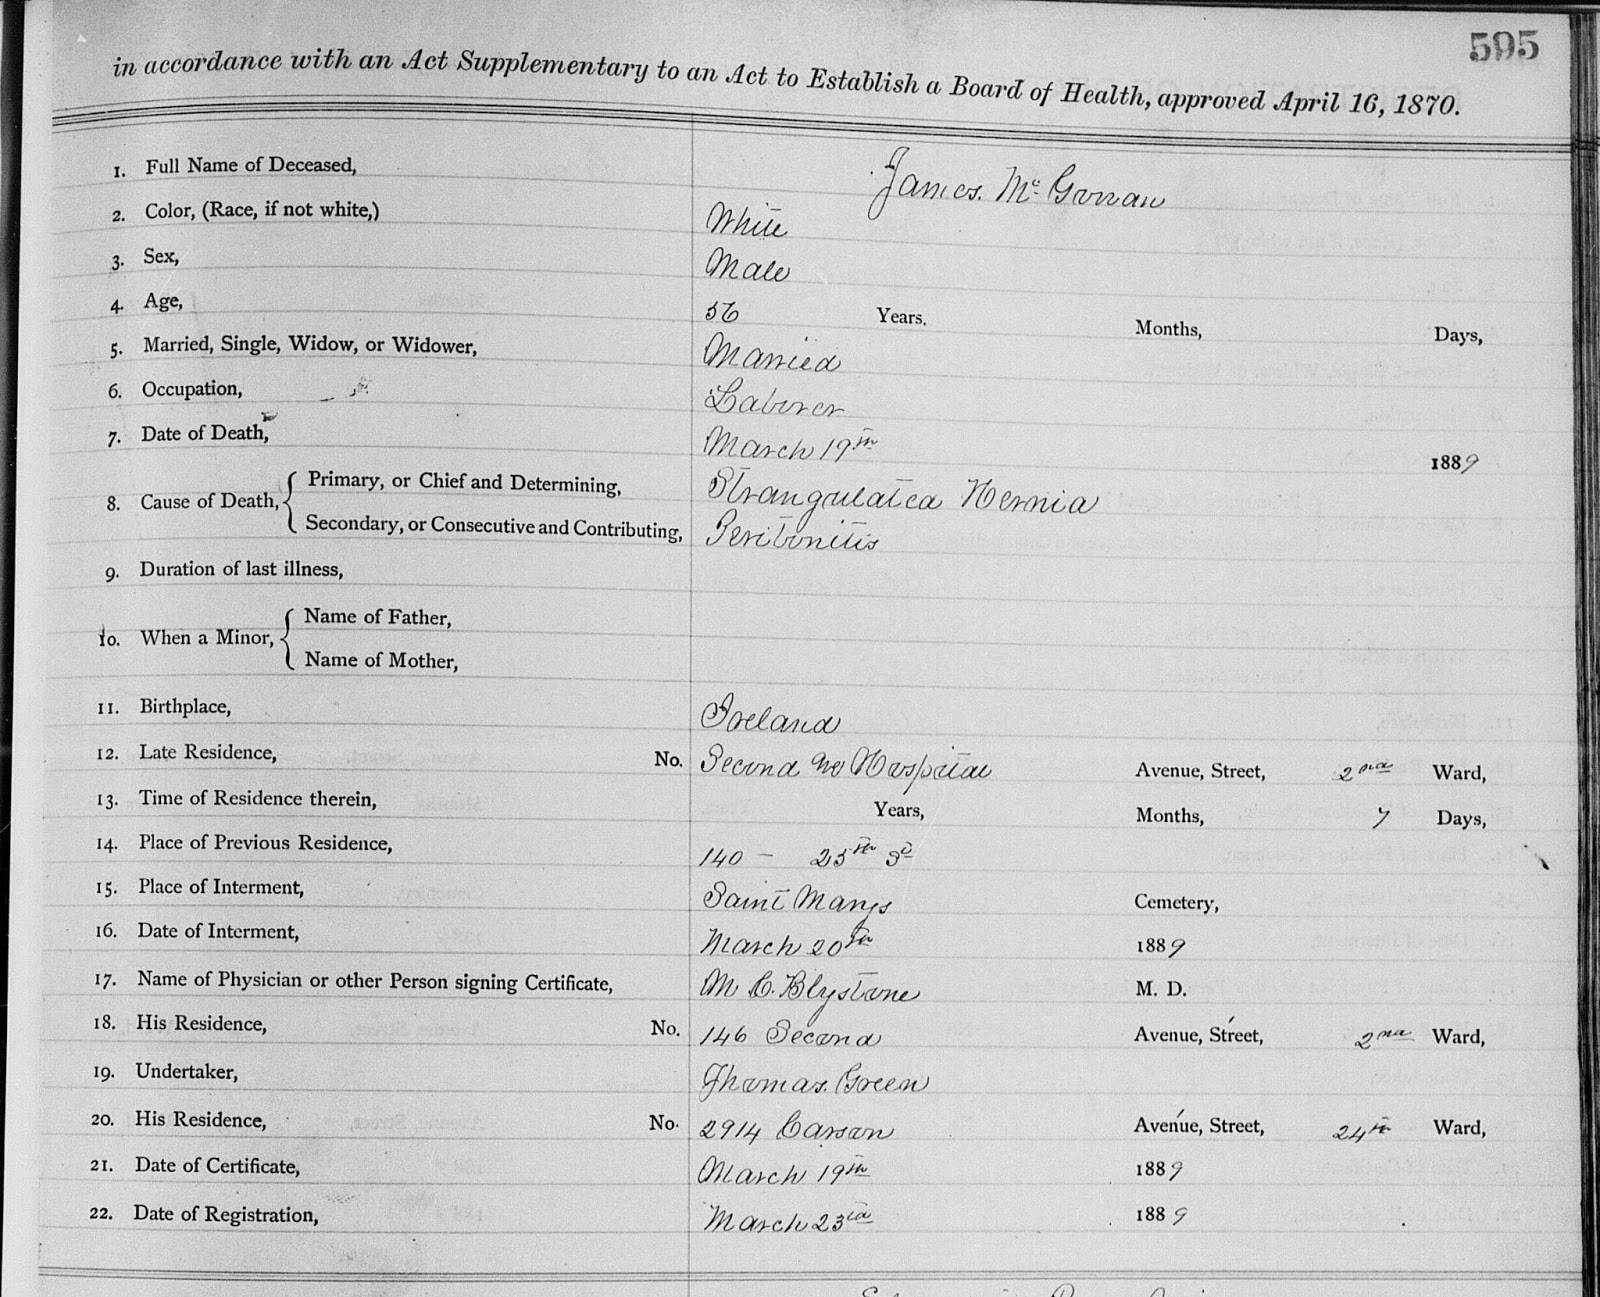 595
in accordance with an Act Supplementary to an Act to Establish a Board of Health, approved April 16, 1870.
1. Full Name of Deceased, James. Mc
2. Color, (Race, if not white,) White
3. Sex, Male
4. Age, 56 Years. Months, Days,
5. Married, Single, Widow, or Widower, Married
6. Occupation, Laborer
7. Date of Death, March 19th 1889
8. Cause of Death, { Primary, or Chief and Determining, Strangulated Hernia
Secondary, or Consecutive and Contributing, Peritonitis
9. Duration of last illness,
10. When a Minor, { Name of Father,
Name of Mother,
11. Birthplace, Ireland
12. Late Residence, No. Second Hospital Avenue, Street, 2nd Ward,
13. Time of Residence therein, Years, Months, 7 Days,
14. Place of Previous Residence, 140 – 25th St
15. Place of Interment, Saint Marys Cemetery,
16. Date of Interment, March 20th 1889
17. Name of Physician or other Person signing Certificate, M C. Blystone M. D.
18. His Residence, No. 146 Second Avenue, Street, 2nd Ward,
19. Undertaker, Thomas. Green
20. His Residence, No. 2914 Carson Avenue, Street, 24th Ward,
21. Date of Certificate, March 19th 1889
22. Date of Registration, March 23rd 1889